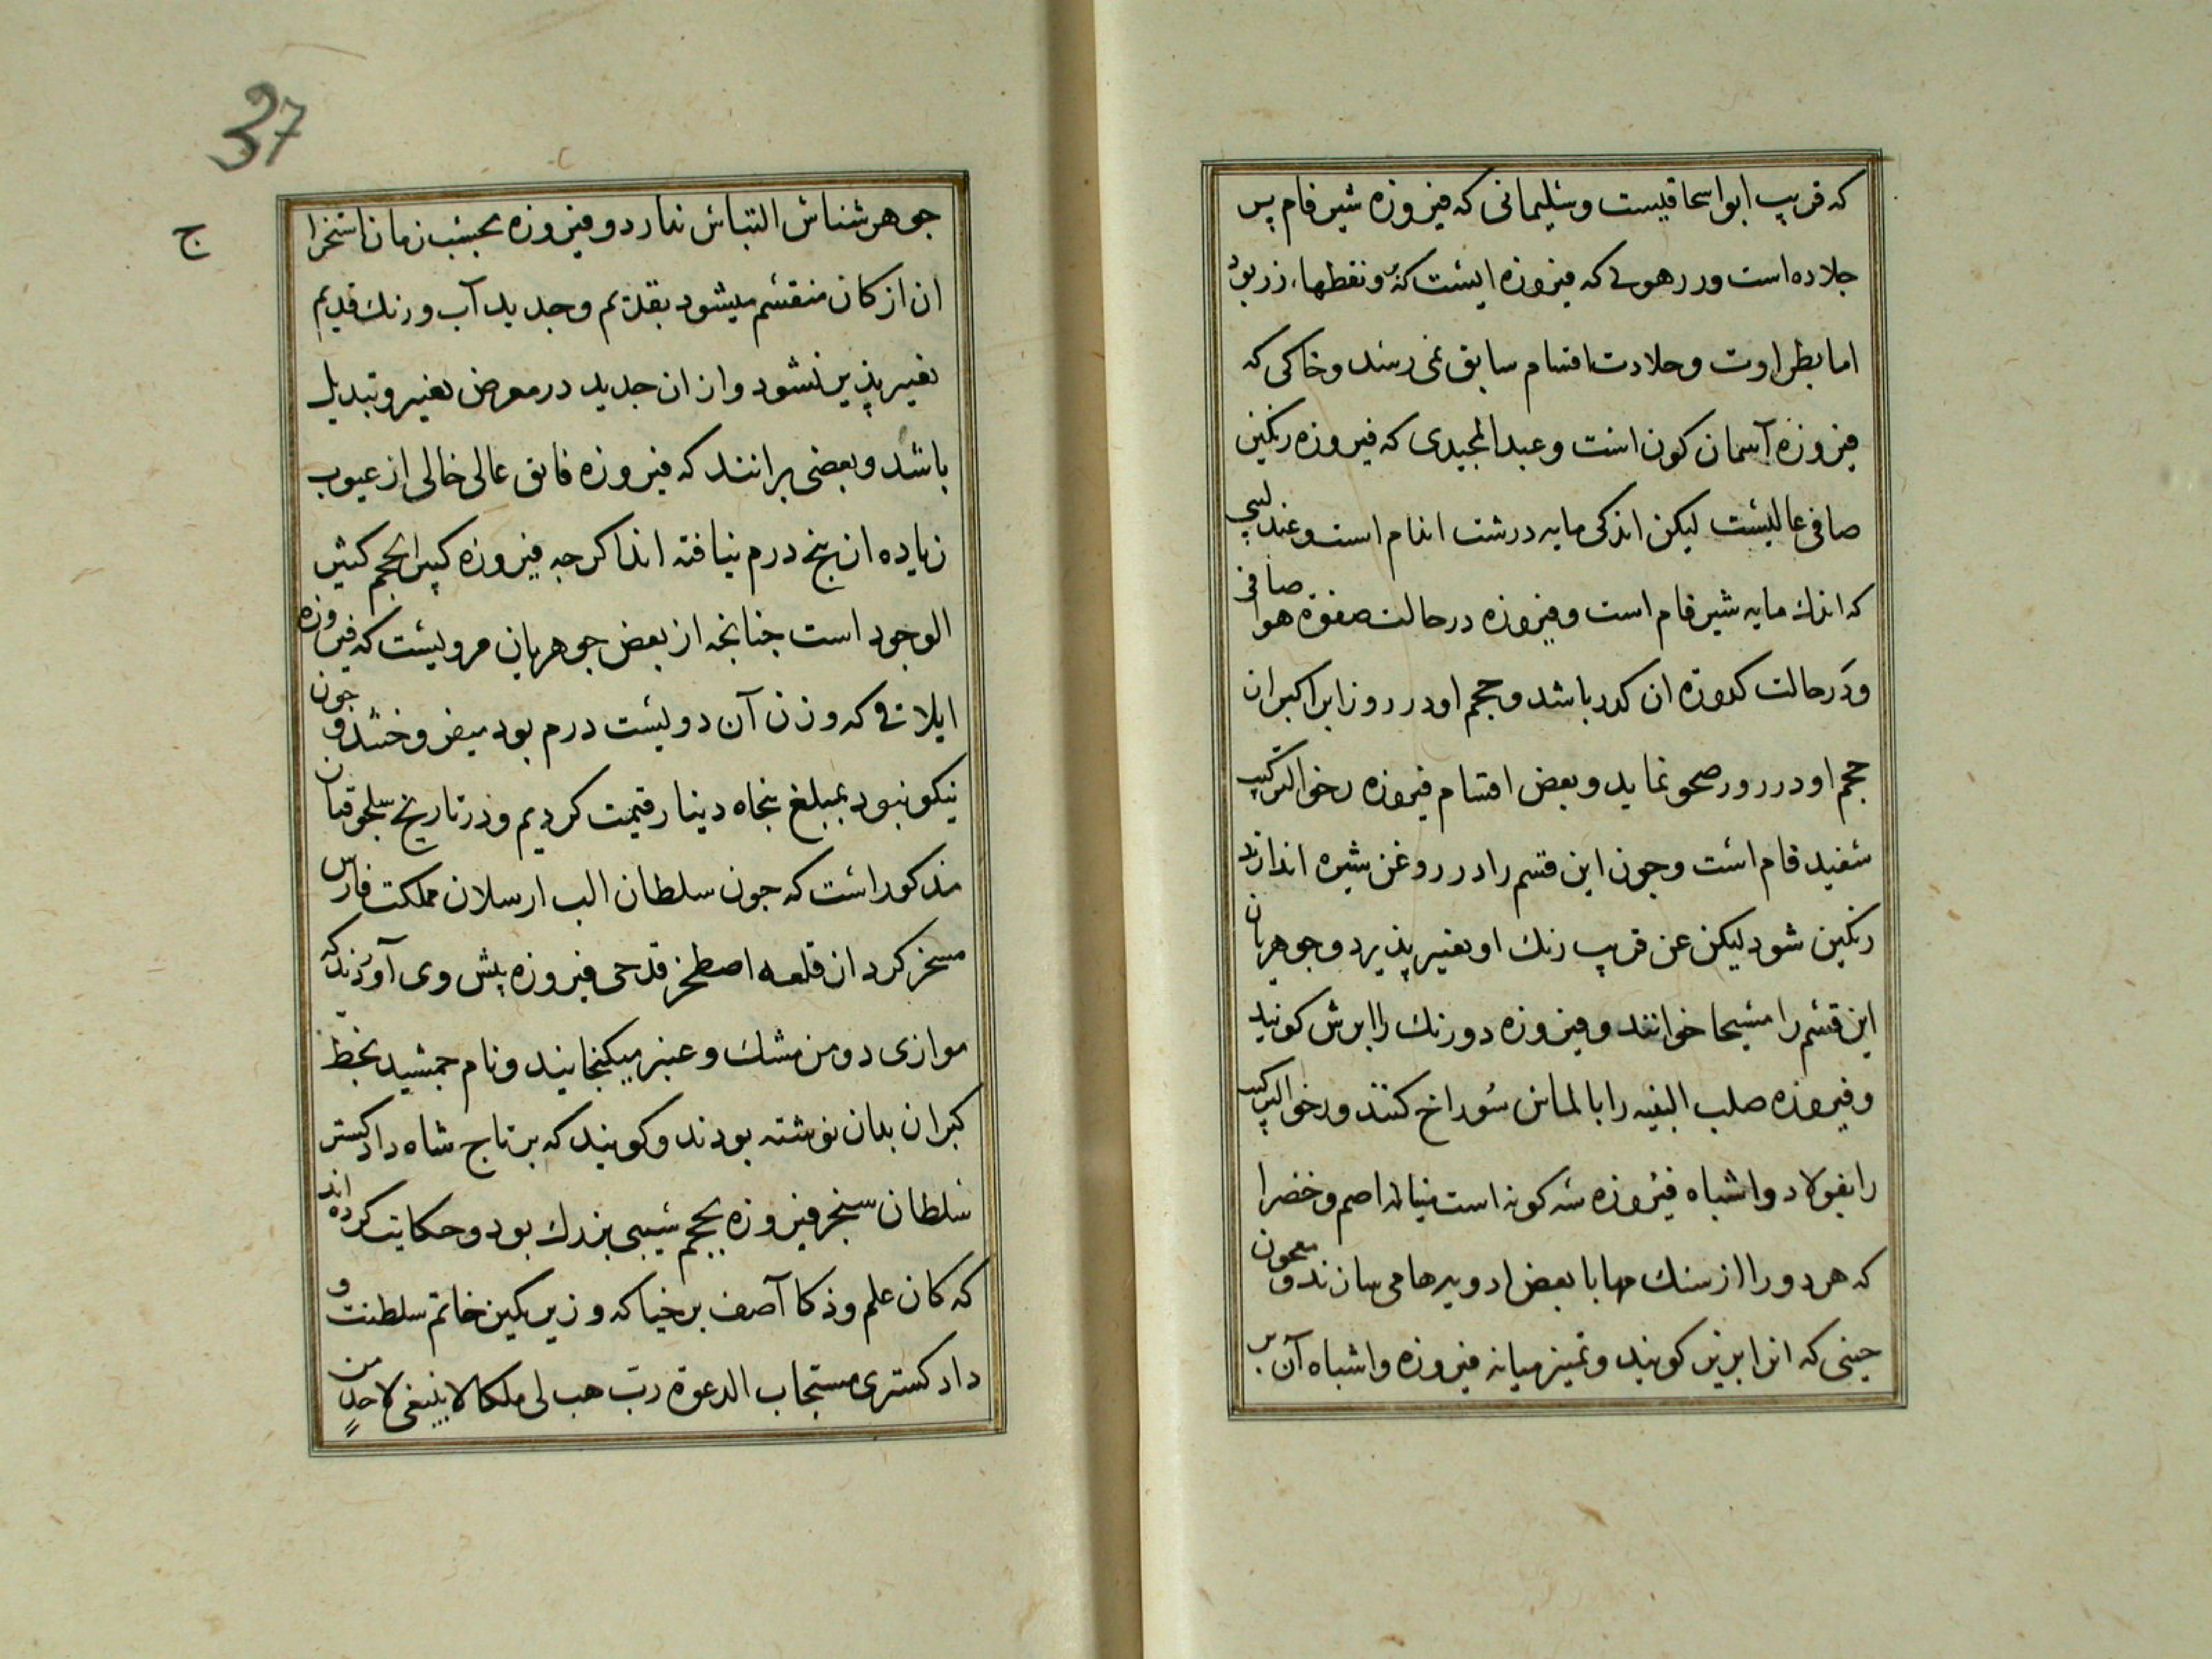 که قریب ابواسحاقیست وسلیمانی که فیروزه شیر فام پس
جلاده است ودر رهوی که فیروزه ایست که و نقطهاء زر بود
اما بطراوت وحلادت اقسام سابق نمی رسد وخاکی که
فیروزه آسمان کون است وعبدالمجیدی که فیروزه رنکین
صافی عالیست لیکن اندکی مایه درشت اندام است وعندلیبی
که اندك مایه شیر فام است وفیروزه درحالت صفوة هوا صافی
ودرحالت کدورة ان کدر باشد وحجم اودر روز ابر اکبر از
حجم اودر روز صحو نماید وبعض اقسام فیروزه رخو الترکیب
سفید فام است وجون این قسم را در روغن شیره اندازند
رنکین شود لیکن عن قریب رنك او تغیر پذیرد وجوهریان
این قسم را مسیحا خوانند وفیروزه دورنك را ابرش کویند
وفیروزه صلب البنیه را بالماس سوراخ کنند ورخو الترکیب
را بفولاد واشباه فیروزه سه کونه است مینا اصم وخضرا
که هر دو را از سنك مها با بعض ادویه ها می سازند و معجون
جینی که انرا کویند وتمیز میانه فیروزه واشباه آن بر
37
ج
جوهر شناس التباس ندارد وفیروزه بحسب زمان استخراج
ان از کان منقسم میشود بقدیم وجدید آب ورنك قدیم
تغییر پذیر نشود واز ان جدید در معرض تغییر وتبدیل
باشد وبعضی برانند که فیروزه فایق عالی خالی از عیوب
زیاده از پنج درم نیافته اند اکرجه فیروزه کبیر الحجم کثیر
الوجود است جنانجه از بعض جوهریان مرویست که فیروزه
ایلاقی که وزن آن دویست درم بود میفروختند و جون
نیکو نبود بمبلغ پنجاه دینار قیمت کردیم ودر تاریخ سلجوقیان
مذکور است که جون سلطان الب ارسلان مملکت فارس
مسخر کرد از قلعه اصطخر قدحی فیروزه پیش وی آوردند که
موازی دومن مشك وعنبر میکنجانیند ونام جمشید بخط
کبران بدان نوشته بودند وکویند که بر تاج شاه دادکستر
سلطان سنجر فیروزه بحجم سیبی بزرك بود وحکایت کرده اند
که کان علم وذکا آصف برخیا که وزیر نکین خاتم سلطنت و
دادکستری مستجاب الدعوة ربّ هب لی ملکا لا ینبغی لاحدٍ من